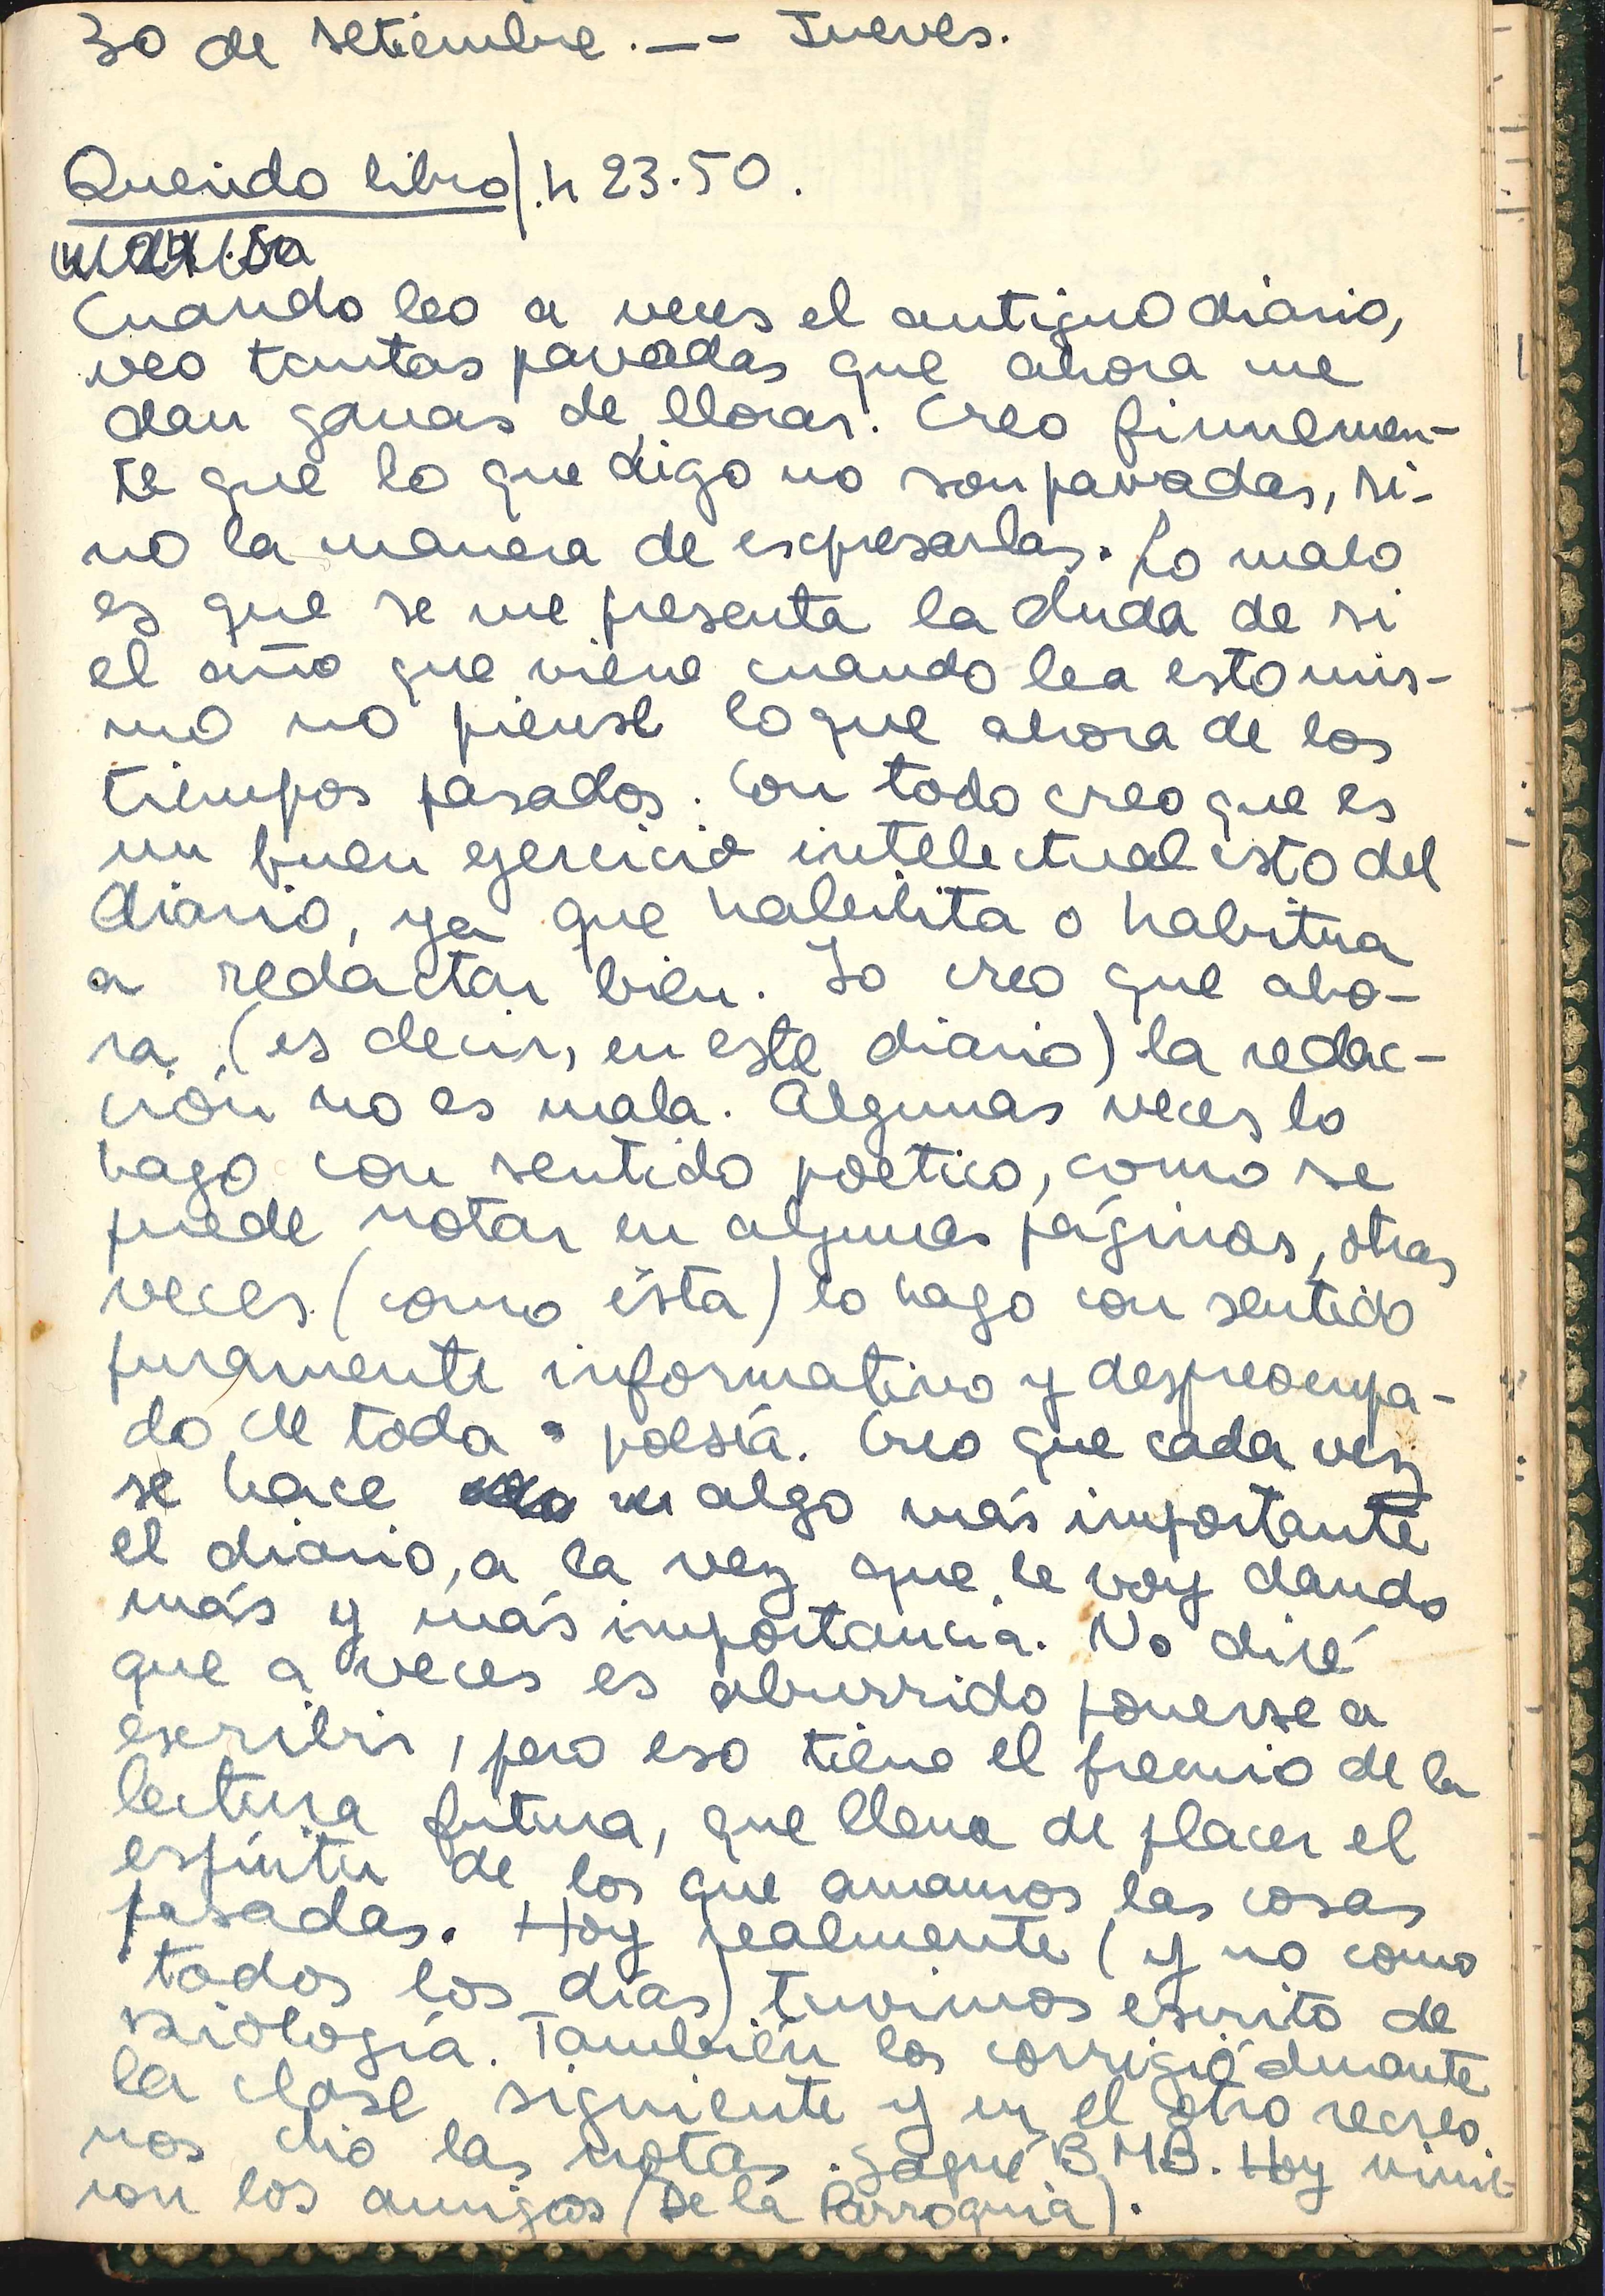 30 de setiembre .—- Jueves.
Querido libro/. h 23.50.
Cuando leo a veces el antiguo diario,
veo tantas pavadas que ahora me
dan ganas de llorar. Creo firmemen-
te que lo que digo no son pavadas, si-
no la manera de expresarlas. Lo malo
es que se me presenta la duda de si
el año que viene cuando lea esto mis-
mo no piense lo que ahora de los
tiempos pasados. Con todo creo que es
un buen ejercicio intelectual esto del
diario, ya que habilita o habitua
a redactar bien. Yo creo que aho-
ra (es decir, en este diario) la redac-
ción no es mala. Algunas veces lo
hago con sentido poetico, como se
puede notar en algunas páginas, otras
veces (como ésta) lo hago con sentido
puramente informativo y despreocupa-
do de toda poesía. Creo que cada vez
se hace algo más importante
el diario, a la vez que le voy dando
más y más importancia. No diré
que a veces es aburrido ponerse a
escribir, pero eso tiene el premio de la
lectura futura, que llena de placer el
espíritu de los que amamos las cosas
pasadas. Hoy realmente (y no como
todos los días) tuvimos escrito de
. También los corrigió durante
la clase siguiente y en el otro recreo
nos dio las notas. Saqué BMB. Hoy vinie-
ron los amigos (De la Parroquia).